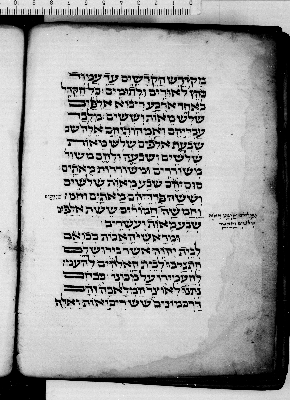 מקדש הקדשים עד עמוד
כהן לאורים ולתמים כל הקהל
כאחד ארבע רבוא אלפים
שלש מאות וששים מלבד
עבדיהם ואמהותיהם אלה שב
שבעת אלפים שלש מאות
שלשים ושבעה ולהם משור
משוררים ומשוררות מאתים
סוסיהם שבע מאות שלשים
וששה פרדיהם מאתים וחמ
וחמשה חמורים ששת אלפים
שבע מאות ועשרים
ומראשי האבות בבואם
לבית יהוה אשר בירושלם
התנדבו לבית האלהים להעמ
להעמידו על מכונו ככחם
נתנו לאוצר המלאכה זהב
דרכמונים שש רבאות ואלף